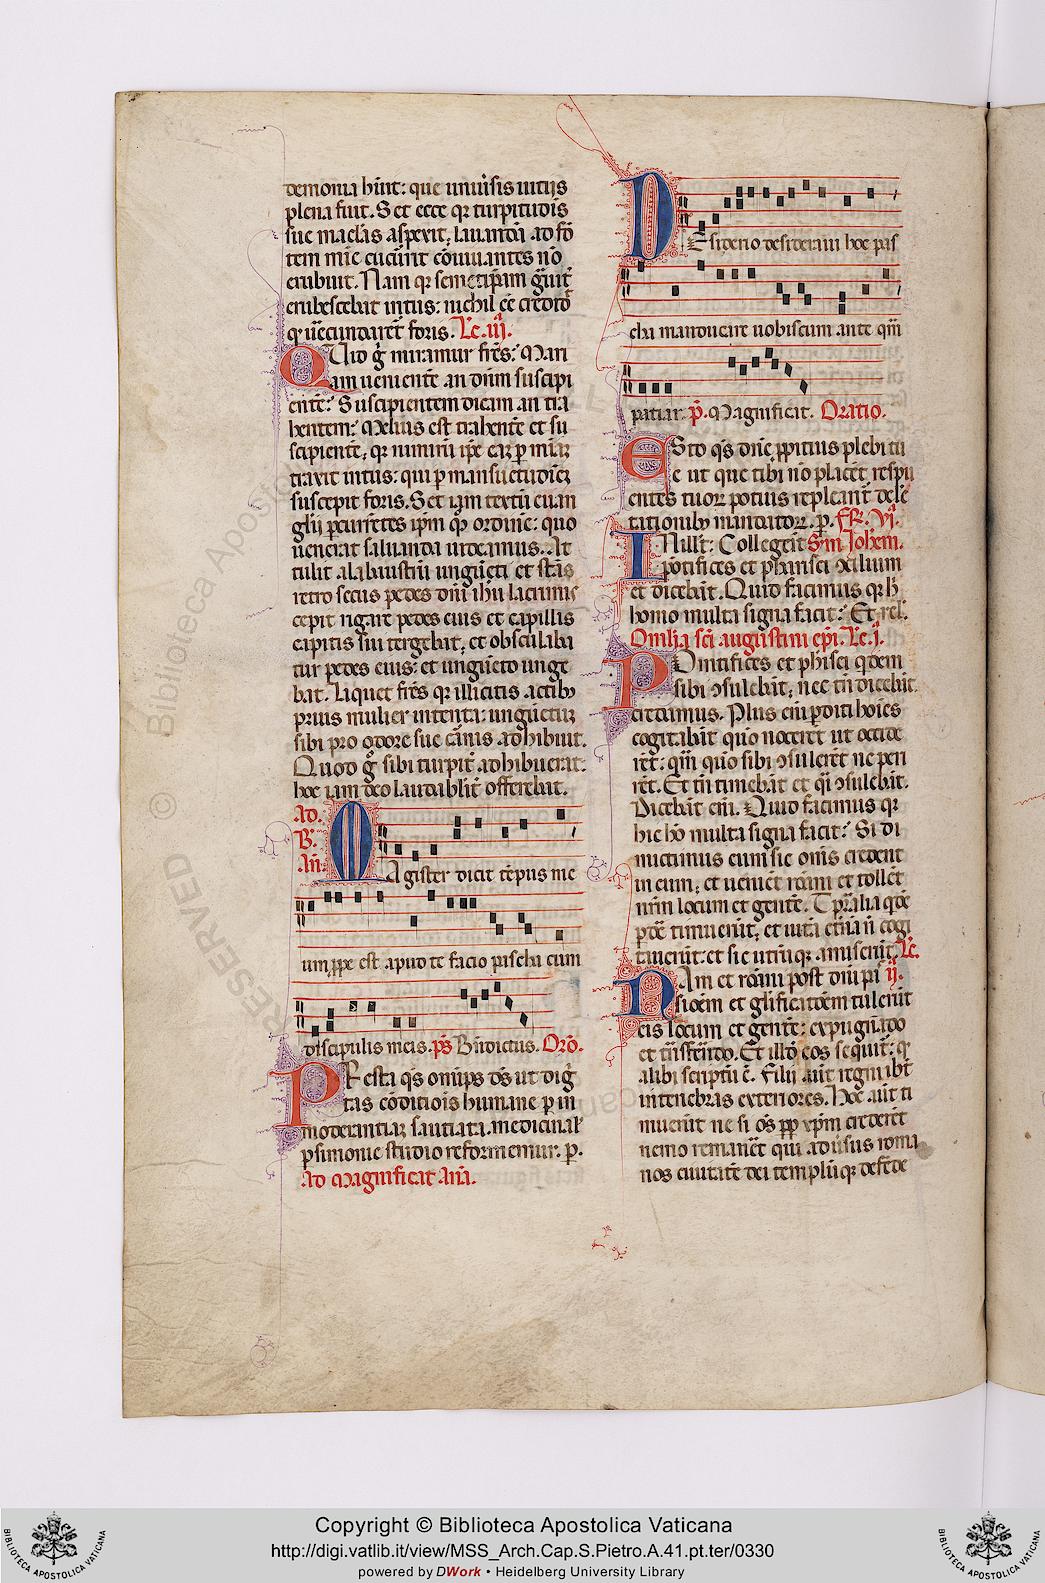 demonia hűit: que uniũsis uitijs
plena fuit. Set ecce qr turpitudis
sue maclas aspexit, lauanda ad fõ
tem mie cucurit coniuantes nõ
erubuit. Nam qr semetipam guit
erubescebat intus: nichil eẽ credidit
q uecundaret foris. Lc. iij.
Quid g̃ miramur frẽs: Mari
am uenientẽ an dñm suscipi
entẽ: Suscipientem dicam an tra
hentem: Melius est trahentẽ et su
scipientẽ, qr nimirũ ipe eaz p miaz
traxit intus: qui p mansuetudiez
suscepit foris. Set iam textũ euan
glij pcurrẽtes ipm qz ordinẽ: quo
uenerat saluanda uideamus. At
tulit alabaustrũ ungũeti et stãs
retro secus pedes dni ihu lacrimis
cepit rigare pedes eius et capillis
capitis sui tergebat, et obsculaba
tur pedes eius: et unguẽto unge
bat. Liquet frẽs qr illicitis actibz
prius mulier intenta: ungũetuz
sibi pro odore sue cãnis adhibuit.
Quod g̃ sibi turpit adhibuerat:
hoc iam deo laudablit offerebat.
Ad.
B.
An.
Magister dicit tẽpus me
um ppe est apud te facio pascha cum
discipulis meis. ps Bñdictus. Orõ.
Presta qs omips ds ut dig
tas cõditiois humane p in
moderantiaz sautiata. medicinal
psimonie studio reformemur. p.
Ad Magnificat Añ.
Desiderio desideraui hoc pas
cha manducare uobiscum ante qm
patiar. p. Magnificat. Oratio.
Esto qs dñe ppitius plebi tu
e ut que tibi nõ placet respu
entes tuoz potius repleant dele
tationibz mandatoz. p. FR. VI.
In illt: Collegert Sm Iohem.
pontifices et pharisei
et dicebat. Quid facimus qr h
homo multa signa facit: Et rel.
Omlia sci augustini epi. Lc. j.
Pontifices et phisei qdem
sibi ɔsulebãt; nec tñ dicebãt
credamus. Plus eni pditi hoies
cogitabãt quo nocerẽt ut occide
rẽt: qm quo sibi ɔsulerẽt ne peri
rẽt. Et tñ timebãt et qi ɔsulebãt.
Dicebãt eni. Quid facimus qr
hic hõ multa signa facit: Si di
mictimus eum sic omis credent
in eum; et uenient romi et tollẽt
nrm locum et gentẽ. Tpralia
pdẽ timuerũt; et uitã etñam ñ cogi
tauerũt: et sic utrũqz amiserũt. Lc.
Nam et romi post dni pas ij.
sioẽm et glificatoẽm tulerũt
eis locum et gentẽ: expugnãdo
et trãsferẽdo. Et illd eos sequit: q
alibi scriptũ ẽ. Filij aũt regni ibt
in tenebras exteriores. Hoc aũt ti
muerũt ne si os pp xpm crederẽt
nemo remanẽt qui aduersus roma
nos ciuitatẽ dei templũqz defẽde
© Biblioteca Apostolica Vaticana
RESERVED
Copyright © Biblioteca Apostolica Vaticana
http://digi.vatlib.it/view/MSS_Arch.Cap.S.Pietro.A.41.pt.ter/0330
powered by DWork • Heidelberg University Library
BIBLIOTECA APOSTOLICA VATICANA
BIBLIOTECA APOSTOLICA VATICANA